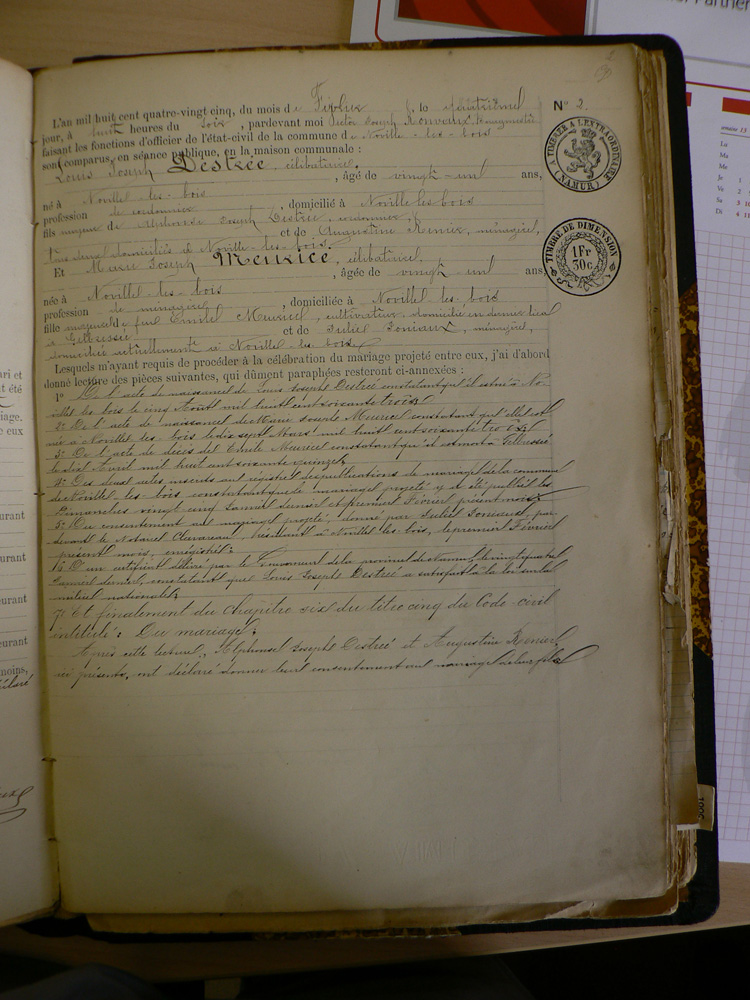 L'an mil huit cent quatre-vingt cinq, du mois de Février, le quatrième
jour, à huit heures du soir, pardevant moi Victor Joseph Bourgmestre
faisant les fonctions d'officier de l'état-civil de la commune de Noville-les-bois
sont comparus, en séance publique, en la maison communale :
Louis Joseph Destrée, célibataire,
, âgé de vingt-un ans,
né à Noville-les-bois
profession de cordonnier, domicilié à Noville les bois
fils majeur de Alphonse Joseph Destrée, cordonnier,
et de Augustine Renier, ménagère,
tous deux domiciliés à Noville-les-bois.
Et Marie Joseph Meurice, célibataire,
, âgée de vingt-un ans
née à Noville-les-bois
profession de ménagère, domiciliée à Noville-les-bois
fille majeure de feu Emile Meurice, cultivateur, domicilié en dernier lieu
à
et de Julie Soniaux, ménagère,
domiciliée actuellement à Noville-les-bois.
Lesquels m'ayant requis de procéder à la célébration du mariage projeté entre eux, j'ai d'abord
donné lecture des pièces suivantes, qui dûment paraphées resteront ci-annexées :
1° De l'acte de naissance de Louis Joseph Destrée constatant qu'il est né à No-
ville les bois le cinq Août mil huit cent soixante trois;
2° De l'acte de naissance de Marie Joseph Meurice constatant qu'elle est
née à Noville-les-bois le dix sept Mars mil huit cent soixante trois;
3° De l'acte de décès de Emile Meurice constatant qu'il est mort à
le Avril mil huit cent soixante quinze;
4° Des deux actes inscrits au registre des publications de mariage de la commune
de Noville-les-bois, constatant que le mariage projeté y a été publié les
Dimanches vingt cinq Janvier dernier et premier Février présent mois;
5° Du consentement au mariage projeté, donné par Julie Soniaux, par
devant le Notaire, résidant à Noville-les-bois, le premier Février
présent mois, enregistré;
6° D'un certificat délivré par le Gouverneur de la province de Namur, le vingt quatre
Janvier dernier, constatant que Louis Joseph Destrée a satisfait à la loi sur la
milice nationale;
7° Et finalement du Chapitre six du titre cinq du Code-civil
intitulé : Du mariage;
Après cette lecture, Alphonse Joseph Destrée et Augustine Renier
ici présents, ont déclaré donner leur consentement au mariage de leur fils
N° 2.
A TIMBRER A L'EXTRAORDINAIRE
(NAMUR)
TIMBRE DE DIMENSION
1Fr
30c